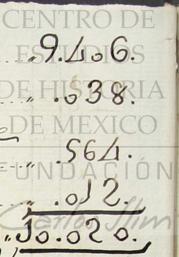 CENTRO DE
„9.406.
ESTUDIOS
DE HISTORIA
„ .038.
DE MEXICO
„ .564.
FUNDACIÓN
„ .012.
Carlos Slim
„10.020.